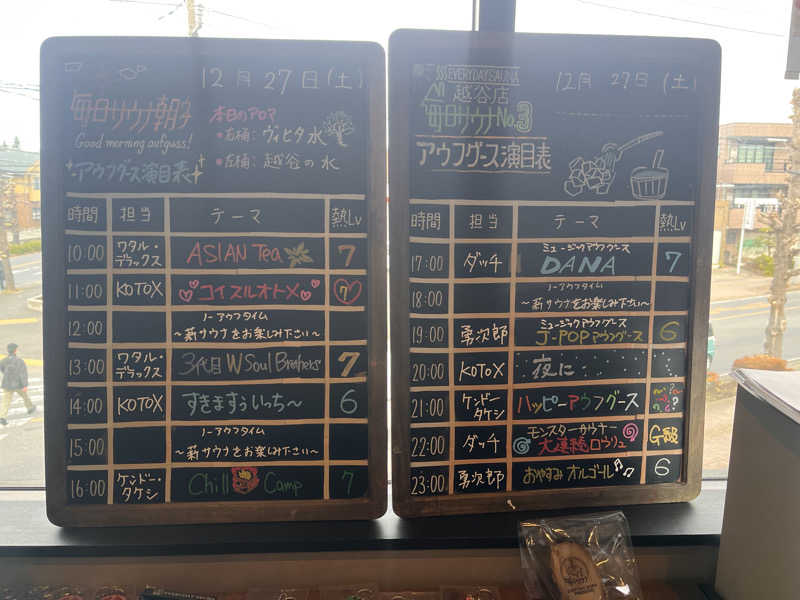 12月27日(土)
毎日サウナ朝子
Good morning aufguss!
アウフグース演目表
本日のアロマ
・右桶: ヴィヒタ水
・左桶: 越谷の水
時間 担当 テーマ 熱Lv
10:00 ワタル・デラックス ASIAN Tea 7
11:00 KOTOX コイスルオトメ 7
12:00 ノーアウフタイム
〜薪サウナをお楽しみ下さい〜
13:00 ワタル・デラックス 3代目 W Soul Brothers 7
14:00 KOTOX すきますぅいっち〜 6
15:00 ノーアウフタイム
〜薪サウナをお楽しみ下さい〜
16:00 ケンドー・タケシ Chill Camp 7
EVERYDAY SAUNA
越谷店
毎日サウナ No.3
アウフグース演目表
12月27日(土)
時間 担当 テーマ 熱Lv
17:00 ダッチ ミュージックアウフグース
DANA 7
18:00 ノーアウフタイム
〜薪サウナをお楽しみ下さい〜
19:00 勇次郎 ミュージックアウフグース
J-POPアウフグース 6
20:00 KOTOX 夜に......
21:00 ケンドー・タケシ ハッピーアウフグース
22:00 ダッチ モンスターサウナー
大連続ロウリュ G級
23:00 勇次郎 おやすみオルゴール 6